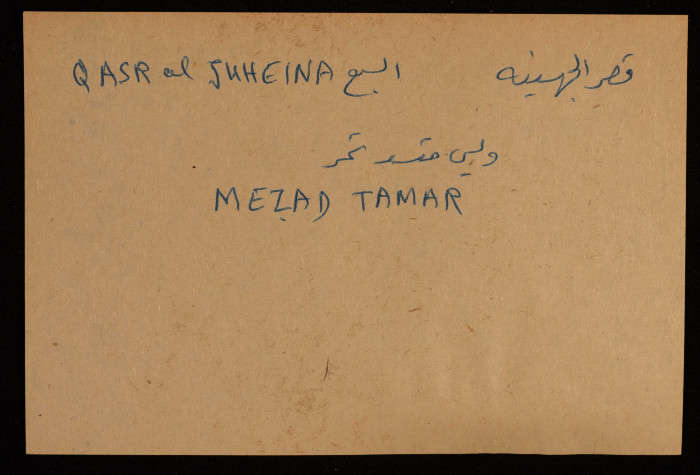 قصر الجهينه QASR al JUHEINA السبع
وليس متسد تمر
MEZAD TAMAR